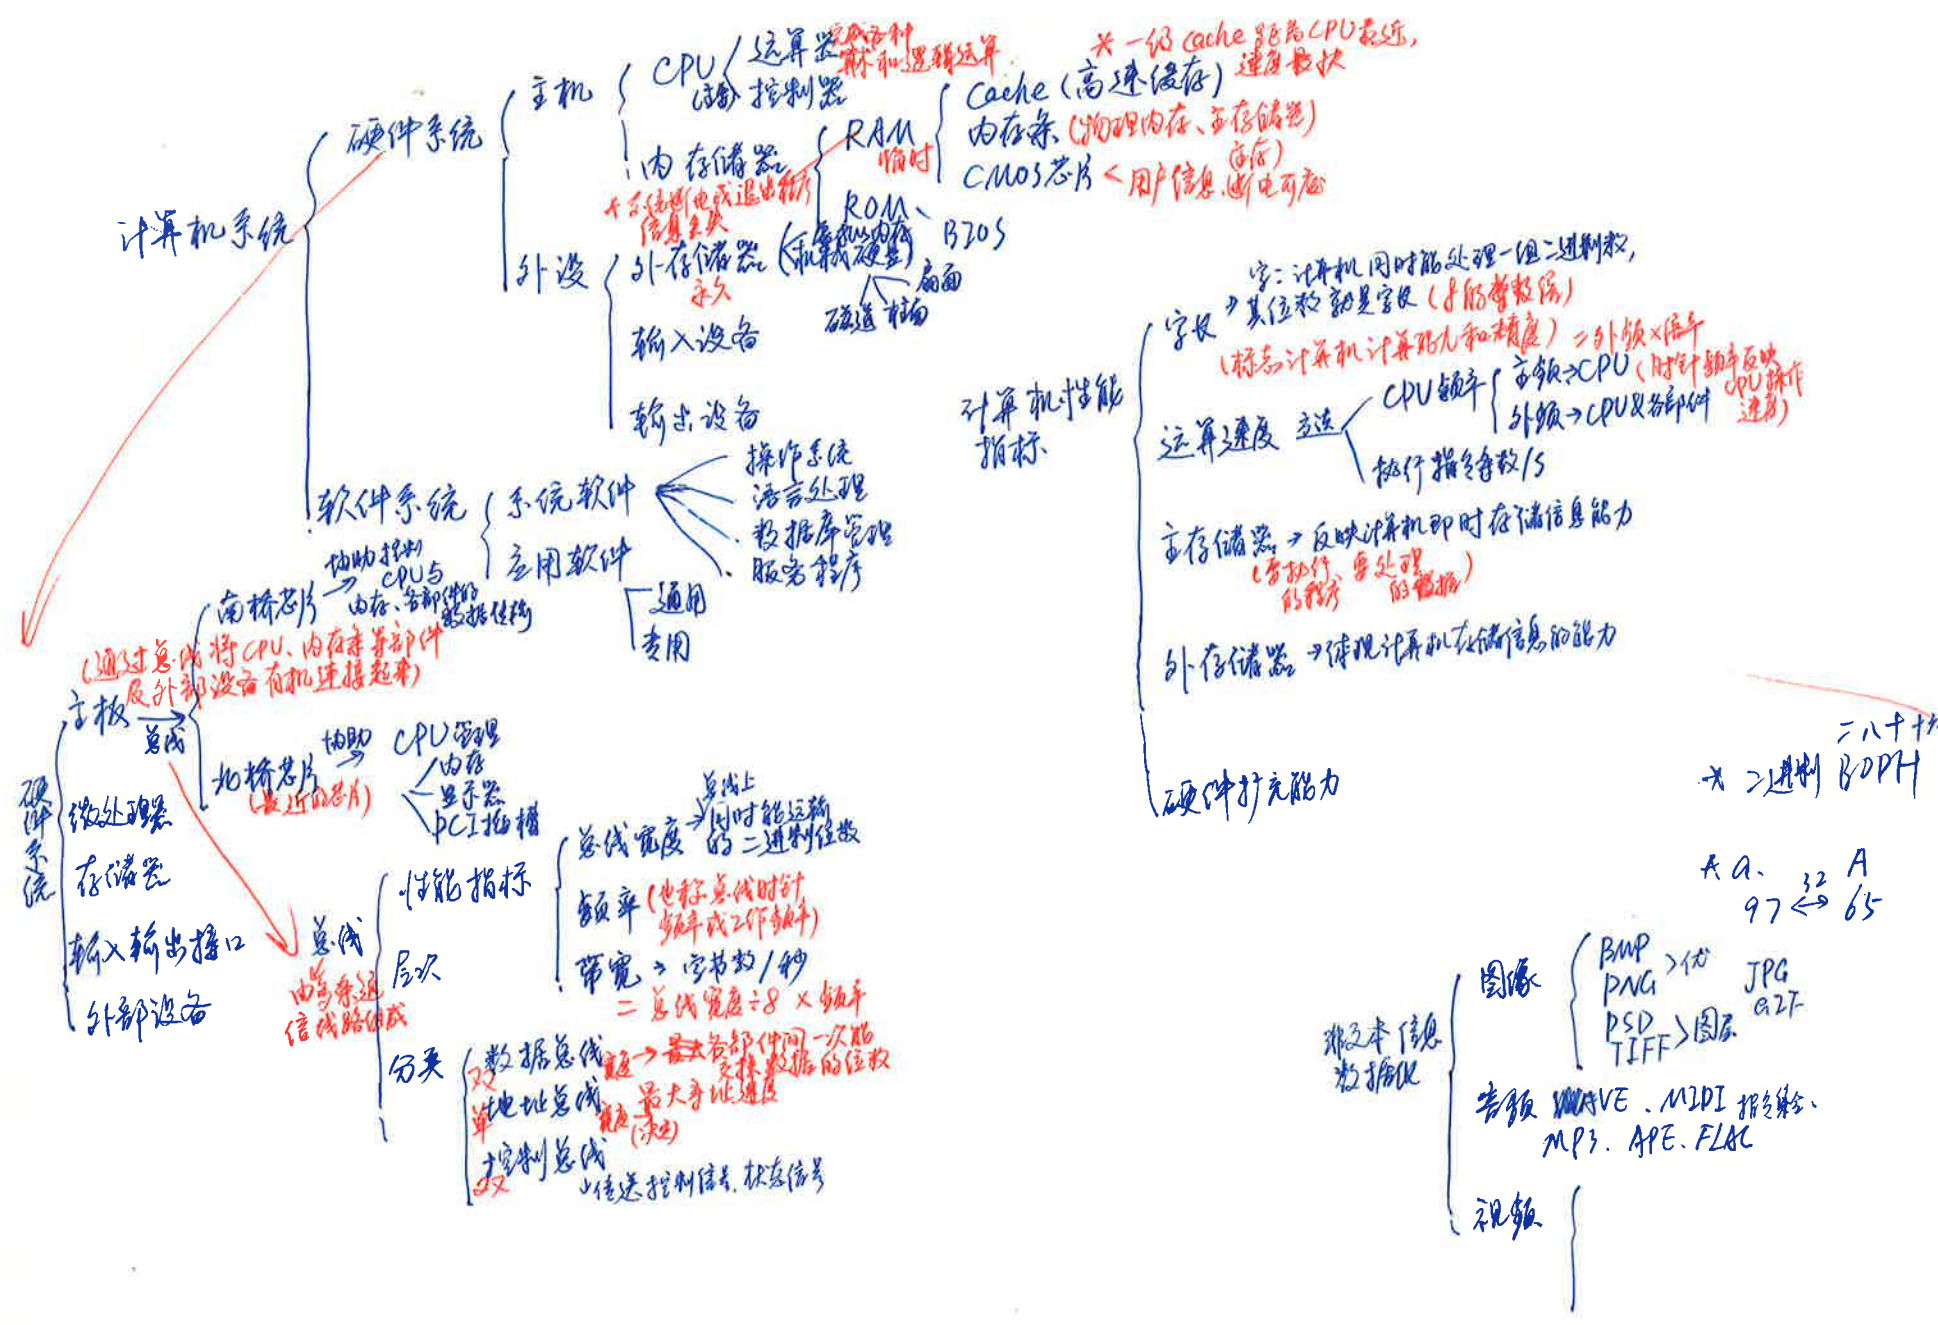 计算机系统
硬件系统
主机
CPU
运算器
完成各种
算术和逻辑运算
控制器
内存储器
*系统断电或退出程序
信息丢失
RAM
临时
Cache (高速缓存)
* 一级cache 距离CPU最近,
速度最快
内存条 (物理内存、主存储器)
(主存)
CMOS芯片 < 用户信息、断电可
ROM、
BIOS
外设
外存储器
永久
磁道 柱面
扇面
输入设备
输出设备
软件系统
系统软件
操作系统
语言处理
数据库管理
服务程序
应用软件
通用
专用
硬件系统
主板
(通过总线将CPU、内存条等部件
及外部设备有机连接起来)
总线
南桥芯片
协助控制
CPU与
内存、各部件的
数据传输
北桥芯片
(最近的芯片)
协助
CPU管理
内存
显示器
PCI插槽
微处理器
存储器
输入输出接口
外部设备
总线
由多条通
信线路组成
性能指标
总线宽度
总线上
同时能运输
的二进制位数
频率 (也称总线时针
频率或工作频率)
带宽 → 字节数/秒
= 总线宽度÷8 × 频率
层次
分类
双 数据总线
宽度→ 各部件间一次能
交换数据的位数
单 地址总线
宽度 → 最大寻址速度
(决定)
双 控制总线
传送控制信号、状态信号
计算机性能
指标、
字长
字:计算机同时能处理一组二进制数,
→其位数就是字长 (8的整数倍)
(标志计算机计算能力和精度)
=外频×倍率
运算速度
方法
CPU频率
主频→CPU (时针频率反映
CPU操作
速度)
外频→CPU&各部件
执行指令条数/s
主存储器→反映计算机即时存储信息能力
(要执行、要处理
的程序 的数据)
外存储器→体现计算机存储信息的能力
硬件扩充能力
二八十十六
* 二进制 BODH
* a. A
97 ↔ 65
32
非文本信息
数据化
图像
BMP
PNG >优
JPG
GIF
PSD
TIFF >图层
音频 WAVE、MIDI 指令集合、
MP3、APE、FLAC
视频